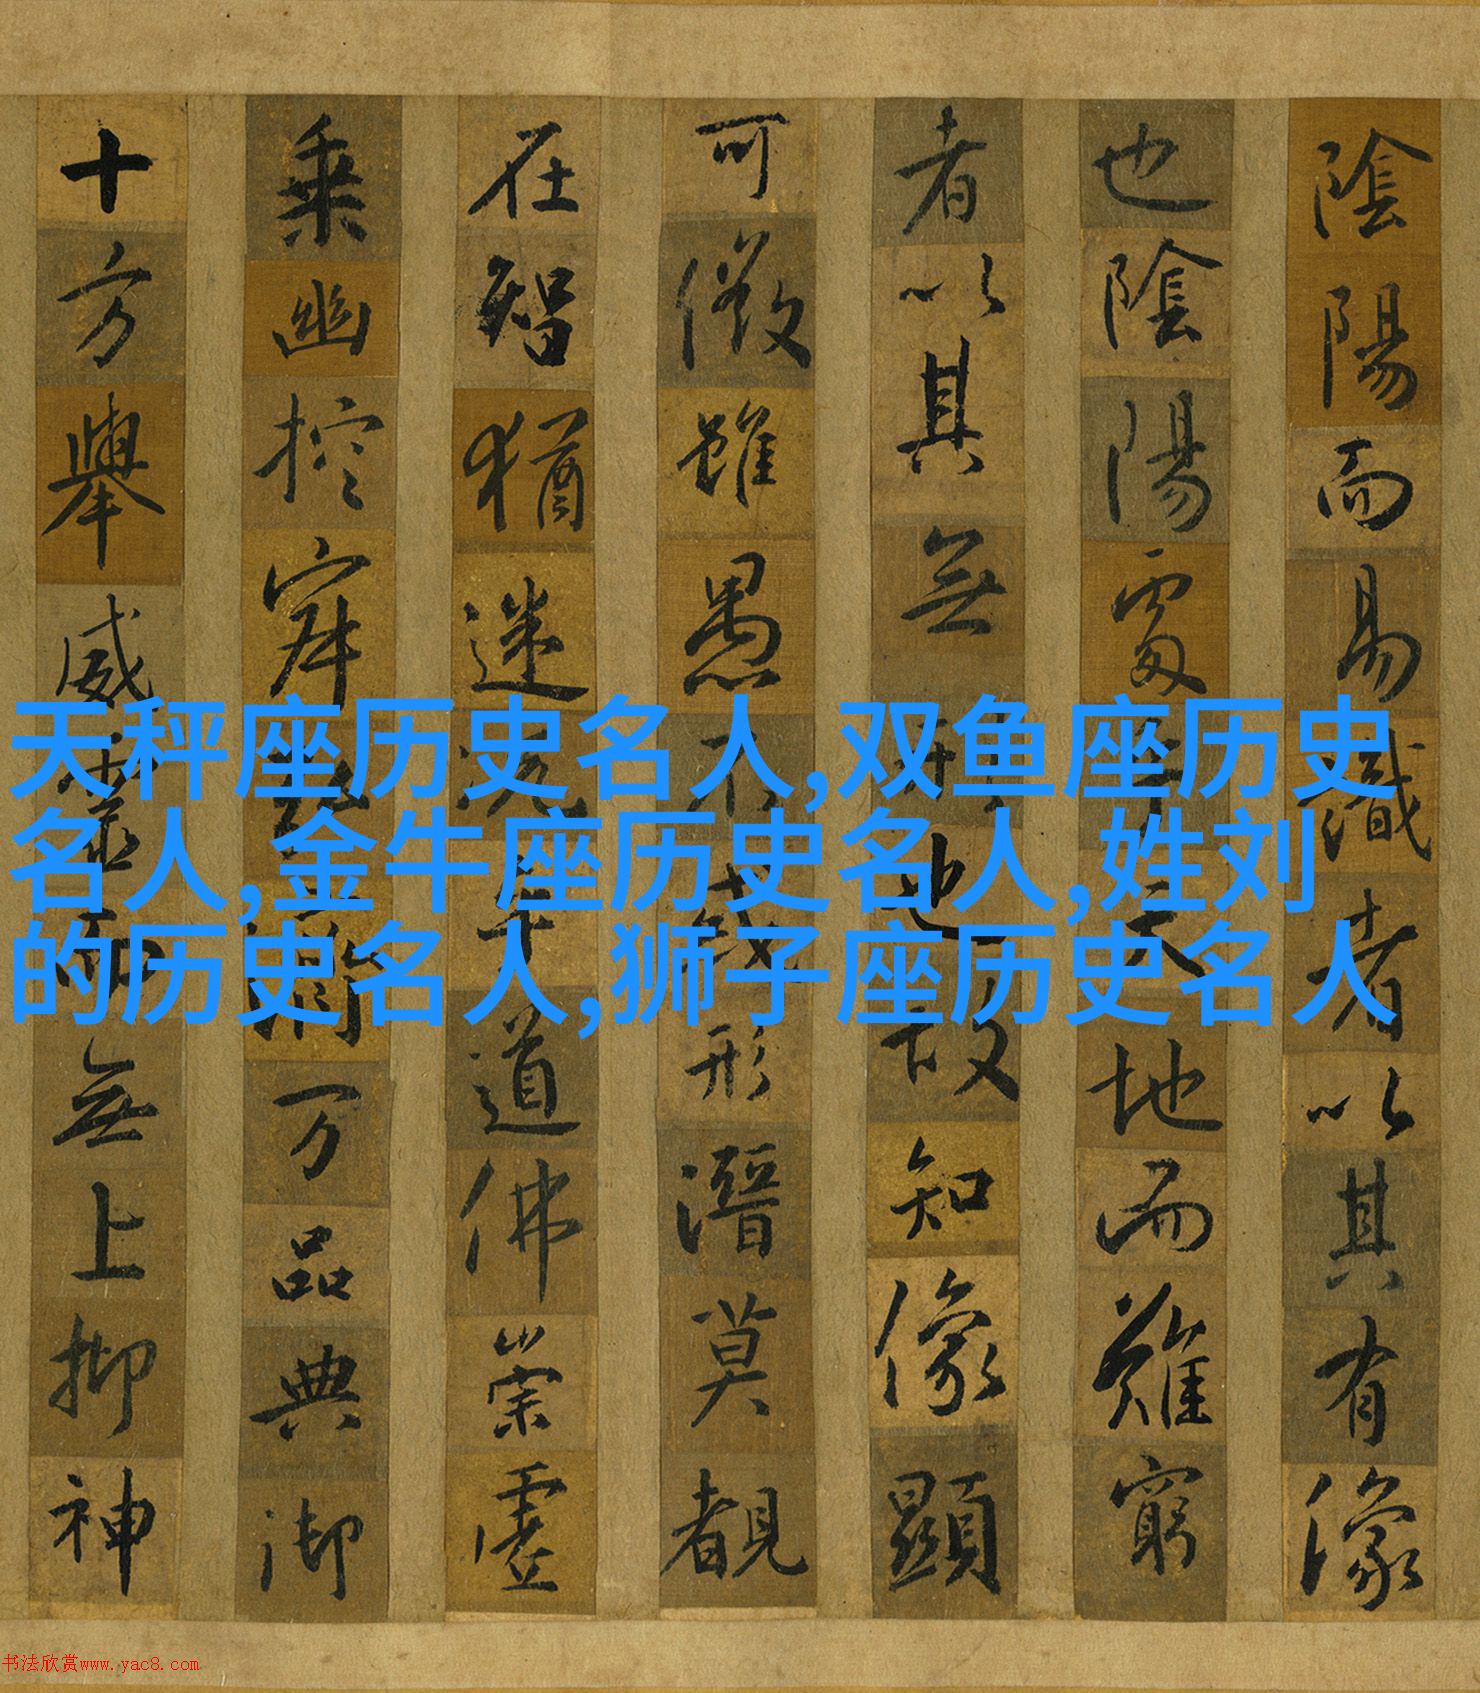 陰陽而易識者以其有像
也陰陽處乎天地而難窮
者以其無形也故知像顯
可徵雖愚不惑形潛莫覩
在智猶迷況乎道佛崇虛
乘幽控寂弘濟万品典御
十方舉威靈而無上抑神
天秤座历史名人,双鱼座历史
名人,金牛座历史名人,姓刘
的历史名人,狮子座历史名人
书法欣赏www.yac8.com